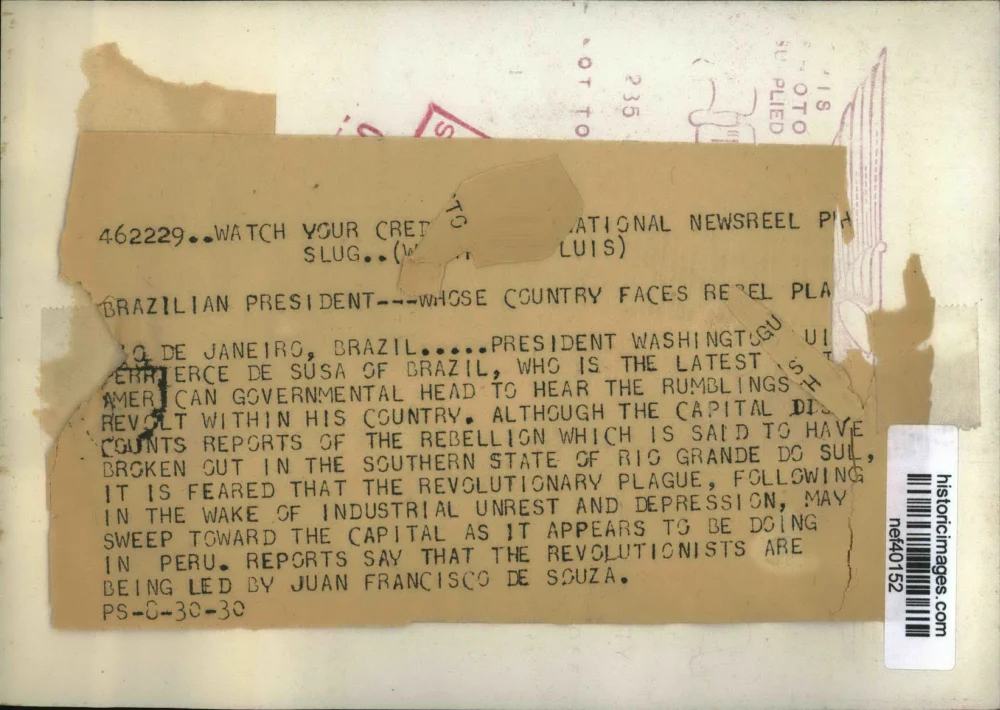 OT TO
235
IS
OTO
SU PLIED
462229..WATCH YOUR CRED TO ATIONAL NEWSREEL PH
SLUG..(W LUIS)
BRAZILIAN PRESIDENT---WHOSE COUNTRY FACES REBEL PLA
GU
SH
O DE JANEIRO, BRAZIL.....PRESIDENT WASHINGTO UI
PERRIERCE DE SUSA OF BRAZIL, WHO IS THE LATEST
AMERICAN GOVERNMENTAL HEAD TO HEAR THE RUMBLINGS
REVOLT WITHIN HIS COUNTRY. ALTHOUGH THE CAPITAL DIS
COUNTS REPORTS OF THE REBELLION WHICH IS SAID TO HAVE
BROKEN OUT IN THE SOUTHERN STATE OF RIO GRANDE DO SUL,
IT IS FEARED THAT THE REVOLUTIONARY PLAGUE, FOLLOWING
IN THE WAKE OF INDUSTRIAL UNREST AND DEPRESSION, MAY
SWEEP TOWARD THE CAPITAL AS IT APPEARS TO BE DOING
IN PERU. REPORTS SAY THAT THE REVOLUTIONISTS ARE
BEING LED BY JUAN FRANCISCO DE SOUZA.
PS-8-30-30
historicimages.com
nef40152